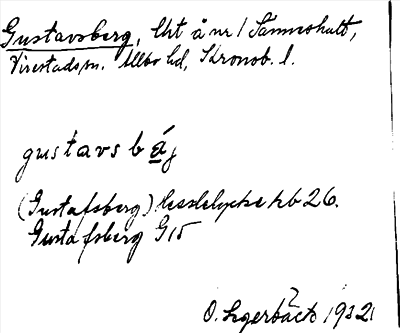 Gustavsberg, lht å nr 1 Sännshult,
Virestads sn. Allbo hd, Kronob. l.
gustavsbäj
(Gustafsberg) hb 26.
Gustafsberg G15
O. Lagerbäck 1932